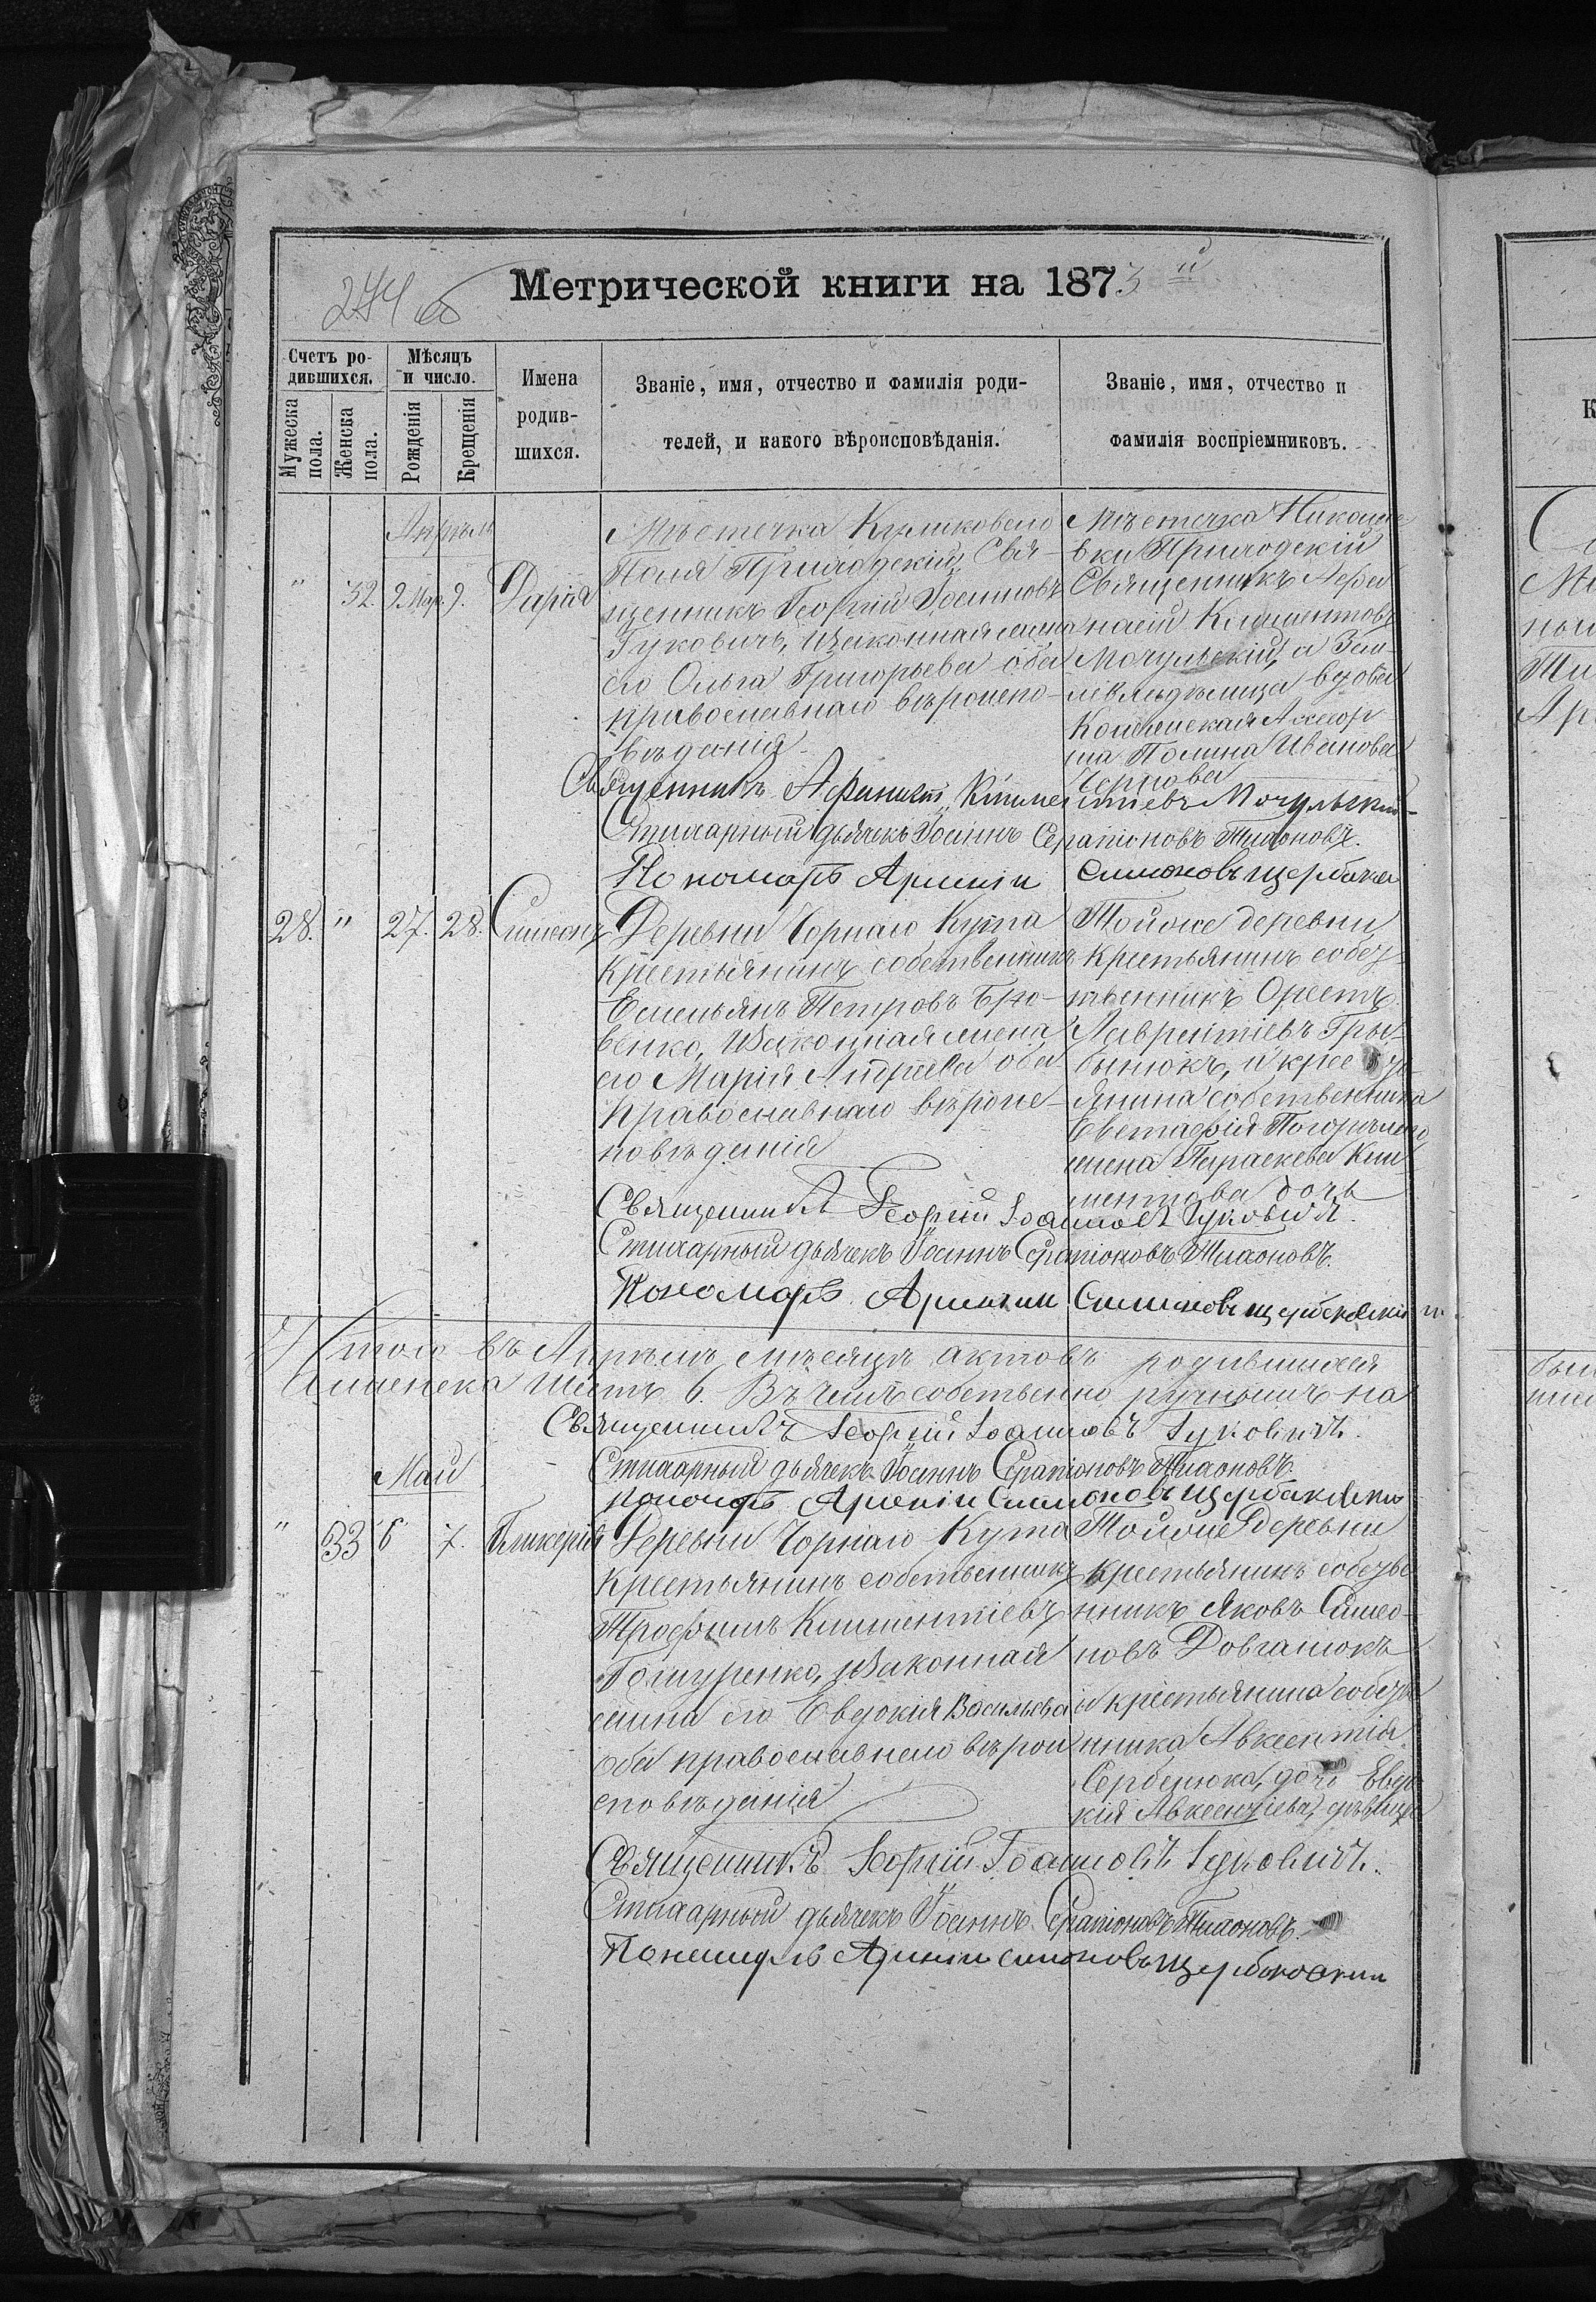 274 об
Метрической книги на 1873 й
Счетъ ро-
дившихся.
Мѣсяцъ
и число.
Мужеска пола.
Женска пола.
Рожденія
Крещенія
Имена
родив-
шихся.
Званіе, имя, отчество и фамилія роди-
телей, и какого вѣроисповѣданія.
Званіе, имя, отчество и
фамилія воспріемниковъ.
Апрѣль
" 32. 9 Мар. 9. Дарія
Мѣстечка Куликового
Поля Приходскій Свя-
щенникъ Георгій Іоанновъ
Гуковичъ, и законная жена
его Ольга Григорьева оба
православнаго вѣроиспо-
вѣданія
Мѣстечка Никола-
вки Приходскій
Священникъ Афа
насій Климентовъ
Мочульскій, и Зем-
левладѣлица вдова
Полина Иванова
Чернова
Священникъ Афанасій Климентіевъ Мочульскій
Стихарный дьячекъ Іоаннъ Серапіоновъ Тихоновъ.
Пономарь Арсеній Симоновъ Щербака
28. " 27. 28. Симеонъ
Деревни Чорнаго Кута
крестьянинъ собственникъ
Емельянъ Петровъ Брю-
венко, и законная жена
его Марія Андреева оба
православнаго вѣроис-
повѣданія
Тойоже деревни
крестьянинъ собс
твенникъ Орестъ
Лаврентіевъ Гры-
бынюкъ, и крестья-
янина собственника
Евстафія
жена Параскева Кли
ментова дочь
Священникъ Георгій Іоанновъ Гуковичъ.
Стихарный дьячекъ Іоаннъ Серапіоновъ Тихоновъ.
Пономарь Арсеній Симоновъ Щербаковскій
Итого въ Апрѣлѣ мѣсяцѣ актовъ родившихся
шесть 6. Въ чемъ собственно ручнымъ на
Священникъ Георгій Іоанновъ Гуковичъ.
Стихарный дьячекъ Іоаннъ Серапіоновъ Тихоновъ
Пономарь Арсеній Симоновъ Щербаковскій
Май
" 33 6 7. Гликерія
Деревни Чорнаго Кута
крестьянинъ собственникъ
Трофимъ Климентіевъ
Гошуренко, и законная
жина его Евдокія Васильева
оба православнаго вѣрои
сповѣданія
Тойоже деревни
крестьянинъ собстве
нникъ Яковъ Симео-
новъ Довганюкъ
и крестьянина собстве
нника Авксентія
Сердюка, дочь Евдо
кія Авксентіева, дѣвица
Священникъ Георгій Іоанновъ Гуковичъ.
Стихарный дьячекъ Іоаннъ Серапіоновъ Тихоновъ.
Пономарь Арсеній Симоновъ Щербаковскій